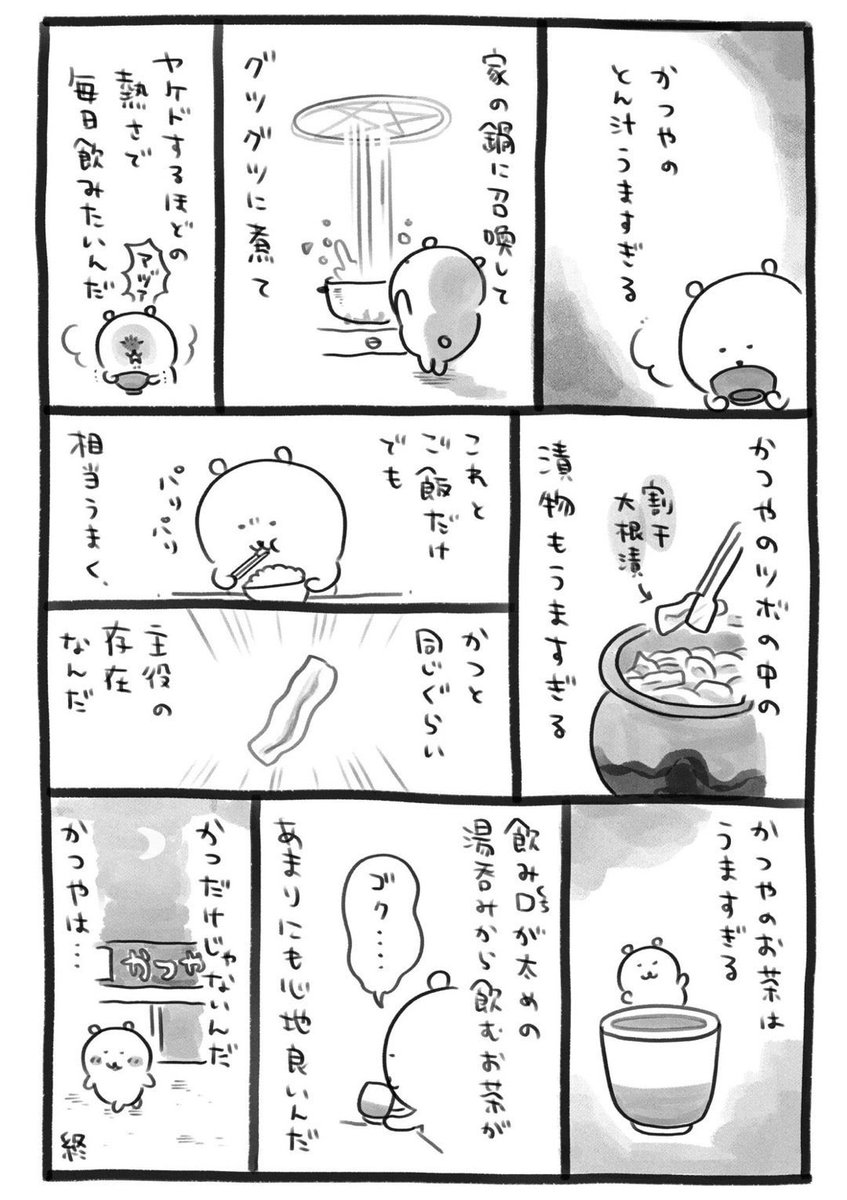 かつやの
とん汁うますぎる
家の鍋に召喚して
グツグツに煮て
ヤケドするほどの
熱さで
毎日飲みたいんだ
アヅァ
かつやのツボの中の
漬物もうますぎる
割干
大根漬
これと
ご飯だけ
でも
相当うまく、
パリパリ
かつと
同じぐらい
主役の
存在
なんだ
かつやのお茶は
うますぎる
飲み口が太めの
くち
湯呑みから飲むお茶が
あまりにも心地良いんだ
ゴク・・・・・
かつだけじゃないんだ
かつやは…
かつや
終